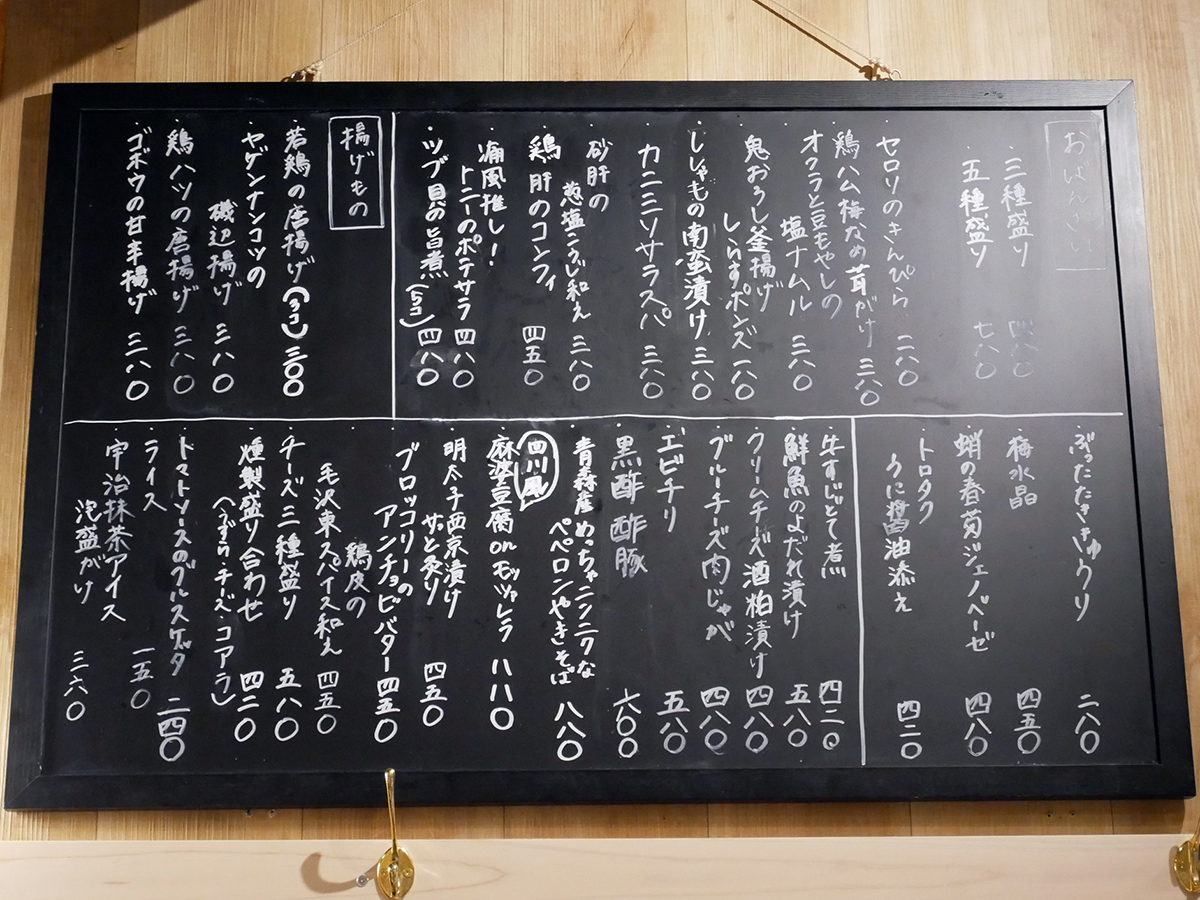 おばんざい
・三種盛り 四八〇
・五種盛り 七八〇
・セロリのきんぴら 二八〇
・鶏ハム梅なめ茸がけ 三八〇
・オクラと豆もやしの
塩ナムル 三八〇
・鬼おろし釜揚げ
しらすポンズ 一八〇
・ししゃもの南蛮漬け 三八〇
・カニミソサラスパ 三八〇
・砂肝の
葱塩こうじ和え 三八〇
・鶏肝のコンフィ 四五〇
・痛風推し!
トニーのポテサラ 四八〇
・ツブ貝の旨煮(5コ) 四八〇
揚げもの
・若鶏の唐揚げ(3コ) 三〇〇
・ヤゲンナンコツの
磯辺揚げ 三八〇
・鶏ハツの唐揚げ 三八〇
・ゴボウの甘辛揚げ 三八〇
・ぶったたききゅうり 二八〇
・梅水晶 四五〇
・蛸の春菊ジェノベーゼ 四八〇
・トロタク
うに醤油添え 四二〇
・牛すじどて煮 四二〇
・鮮魚のよだれ漬け 五八〇
・クリームチーズ酒粕漬け 四八〇
・ブルーチーズ肉じゃが 四八〇
・エビチリ 五八〇
・黒酢酢豚 六〇〇
・青森産めっちゃニンニクな
ペペロンやきそば 八八〇
四川風
・麻婆豆腐onモッツァレラ 八八〇
・明太子西京漬け
サッと炙り 四五〇
・ブロッコリーの
アンチョビバター 四五〇
・鶏皮の
毛沢東スパイス和え 四五〇
・チーズ三種盛り 五八〇
・燻製盛り合わせ
(うずら・チーズ・コアラ) 四二〇
・トマトソースのブルスケッタ 二四〇
・ライス 一五〇
・宇治抹茶アイス
泡盛がけ 三六〇